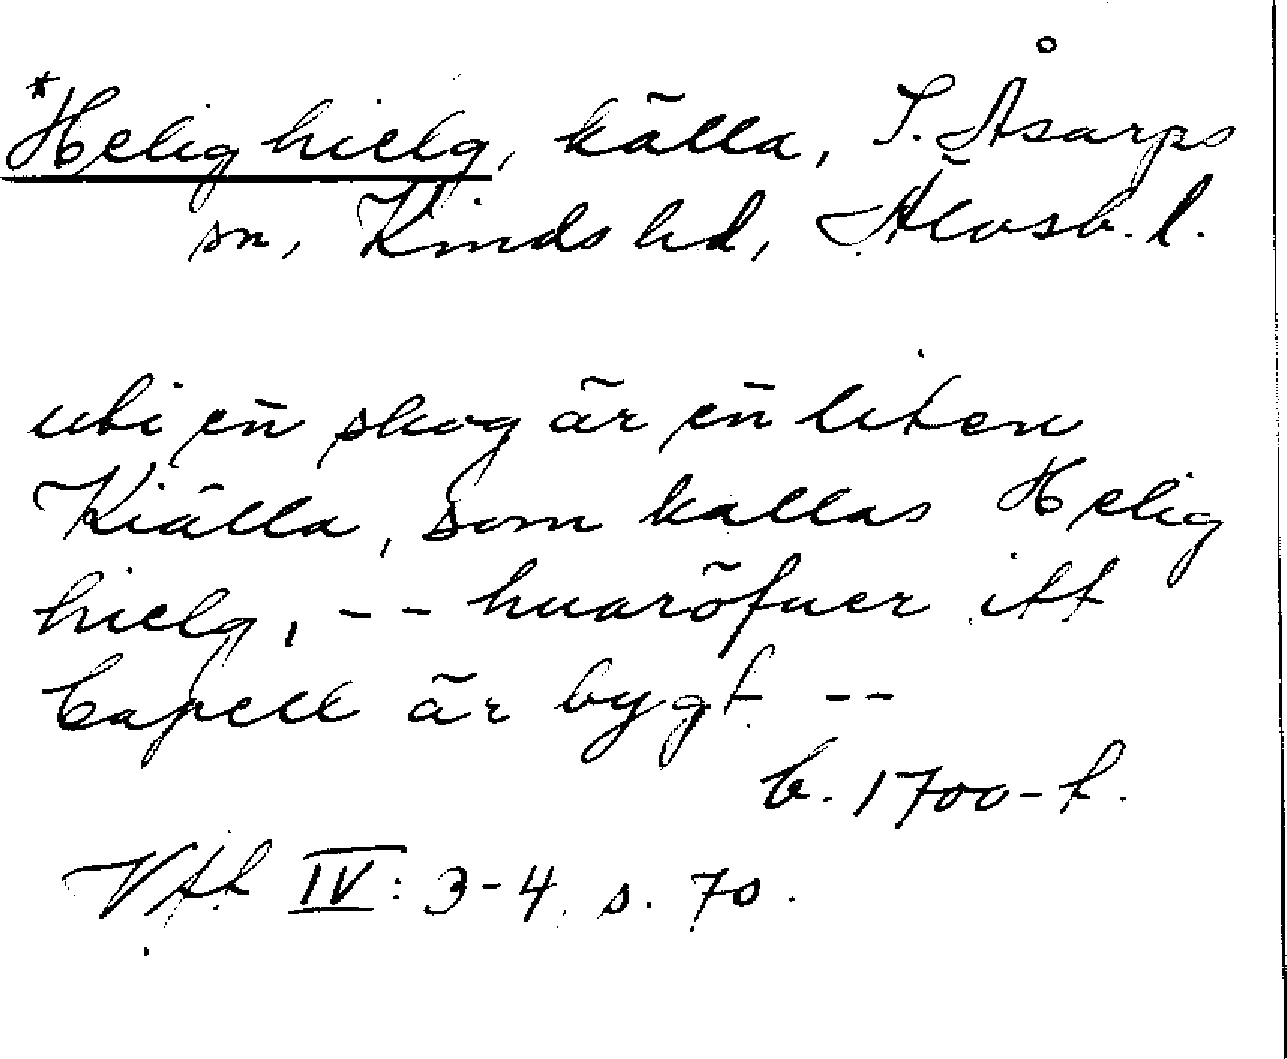 *Helig hielg, källa, S. Åsarps
sn, Kinds hd, Älvsb. l.
uti en skog är en liten
Kiälla, som kallas Helig
hielg, -- huaröfuer itt
Capell är bygt --
b. 1700-t.
Vft IV: 3-4, s. 70.